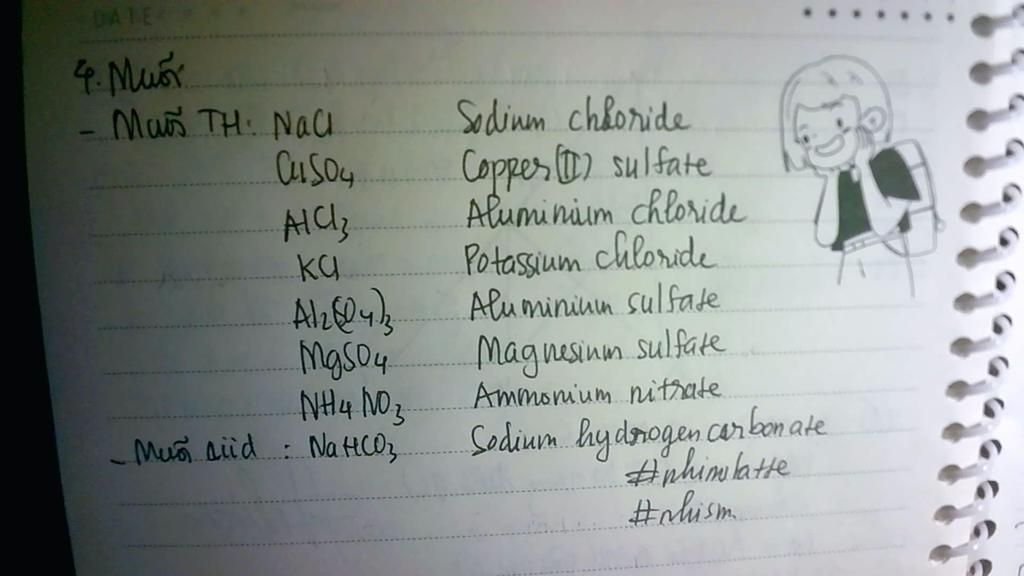 DATE
4. Muối
- Muối TH: NaCl Sodium chloride
CuSO4 Copper(II) sulfate
AlCl3 Aluminium chloride
KCl Potassium chloride
Al2(SO4)3 Aluminium sulfate
MgSO4 Magnesium sulfate
NH4NO3 Ammonium nitrate
- Muối axid : NaHCO3 Sodium hydrogen carbonate
#nhimlatte
#nhism